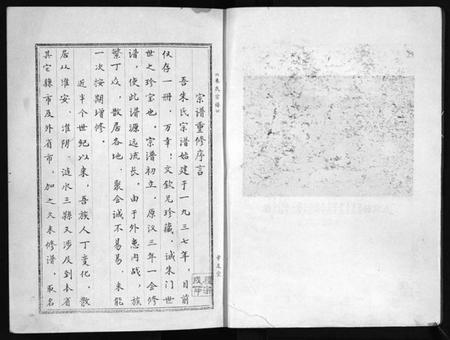 《朱氏宗谱》
宗谱重修序言
吾朱氏宗谱始建于一九三七年，目前
仅存一册，万幸！文钦兄珍藏，诚朱门世
世之珍宝也。宗谱初立，原议三年一会修
谱，使此谱源远流长，由于外患内战，族
繁丁众，散居各地，聚会诚不易易，未能
一次按期增修。
近半个世纪以来，吾族人丁变化，散
居从淮安、淮阴、涟水三县又涉及到本省
其它县市及外省市，加之久未修谱，取名